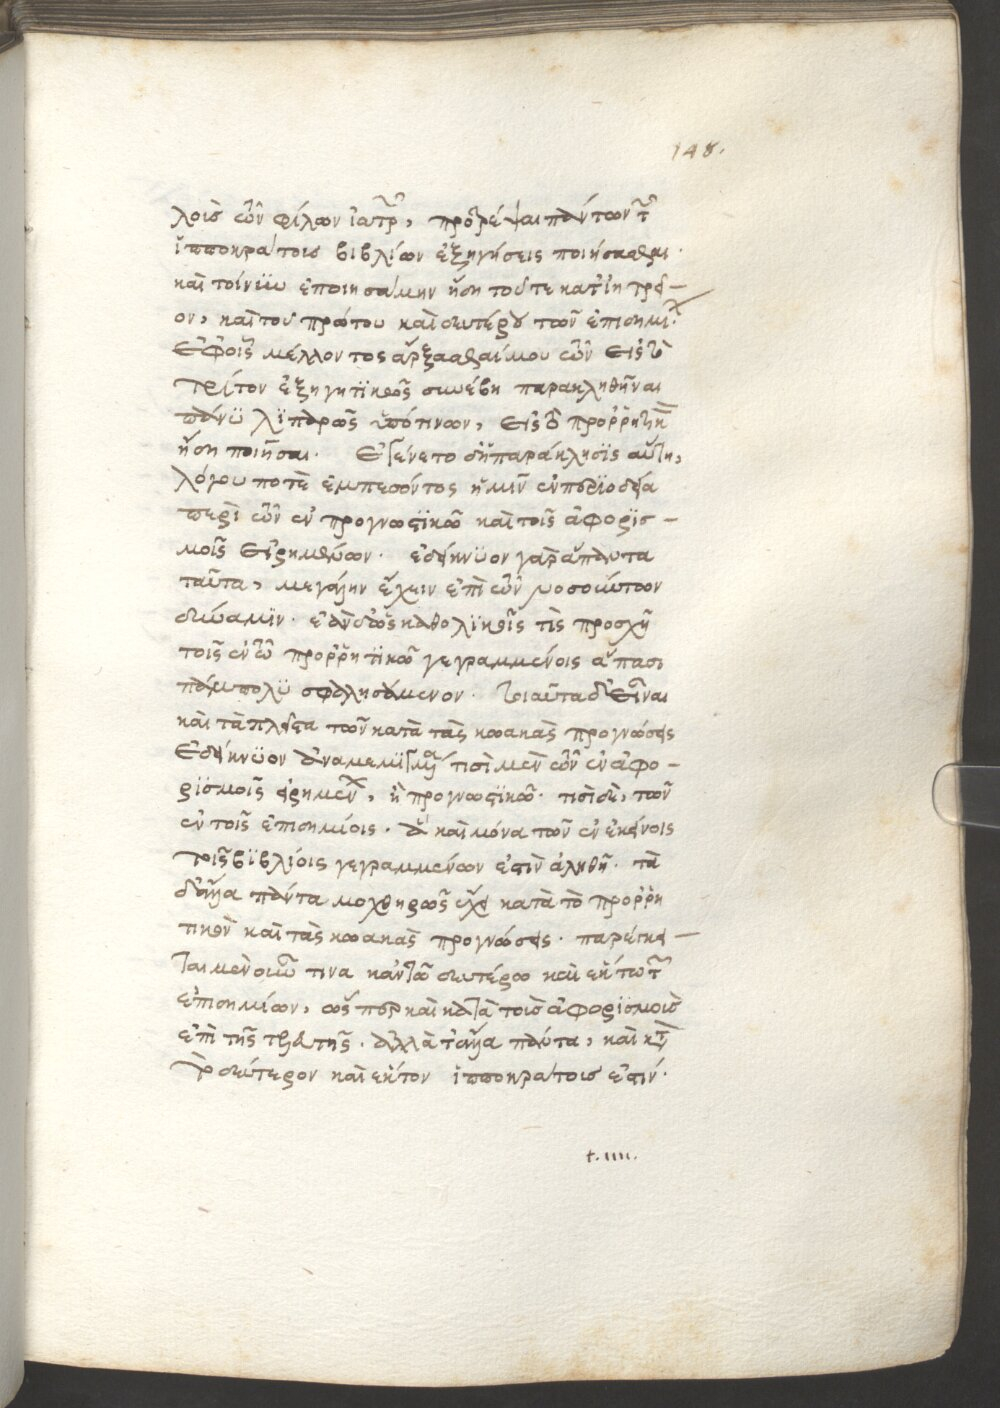 148.
λοις τῶν φίλων ἰατρ, προτρέψαι πάντων τ
ἱπποκράτους βιβλίων ἐξηγήσεις ποιήσασθαι·
καὶ τοίνυν ἐποιησάμην ἤδη τοῦ τε κατ' ἰητρεῖ-
ον, καὶ τοῦ πρώτου καὶ δευτέρου τῶν ἐπιδημι·
ἐφ' οἷς μέλλοντος ἄρξασθαί μου τῶν εἰς τὸ
τρίτον ἐξηγητικῶς συνέβη παρακληθῆναι
πάνυ λιπαρῶς ὑπό τινων, εἰς τὸ προρρητικὸν
ἤδη ποιῆσαι· ἐγένετο δὴ παράκλησις αὕτη,
λόγου ποτὲ ἐμπεσόντος ἡμῖν ἐν περιόδῳ
περὶ τῶν ἐν προγνωστικῶ καὶ τοῖς ἀφορισ-
μοῖς εἰρημένων· ἐδείκνυον γὰρ ἅπαντα
ταῦτα, μεγάλην ἔχειν ἐπὶ τῶν νοσούντων
δύναμιν· ἐὰν δ' ὡς καθολικοῖς τις προσχῇ
τοῖς ἐν τῶ προρρητικῶ γεγραμμένοις ἅπασι
πάμπολυ σφαλησόμενον· τοιαῦτα δ' εἶναι
καὶ τὰ πλεῖστα τῶν κατὰ τὰς κωακὰς προγνώσεις
ἐδείκνυον ἀναμεμιγμένα τισὶ μὲν τῶν ἐν ἀφο-
ρισμοῖς εἰρημεν, ἢ προγνωστικῶ· τισὶ δὲ, τῶν
ἐν τοῖς ἐπιδημίοις· ἃ καὶ μόνα τῶν ἐν ἐκείνοις
τοῖς βιβλίοις γεγραμμένων ἐστὶν ἀληθῆ· τὰ
δ' ἄλλα πάντα μοχθηρῶς ἔχει κατὰ τὸ προρρη
τικὸν καὶ τὰς κωακὰς προγνώσεις· παρέγκει-
ται μὲν οὖν τινα κἀν τῶ δευτέρω καὶ ἕκτω τ
ἐπιδημίων, ὥσπερ καὶ κατὰ τοὺς ἀφορισμοὺς
ἐπὶ τῆς τελευτῆς· ἀλλὰ τἄλλα πάντα, καὶ κατὰ
τὸ δεύτερον καὶ ἕκτον ἱπποκράτους ἐστίν·
t.iiii.